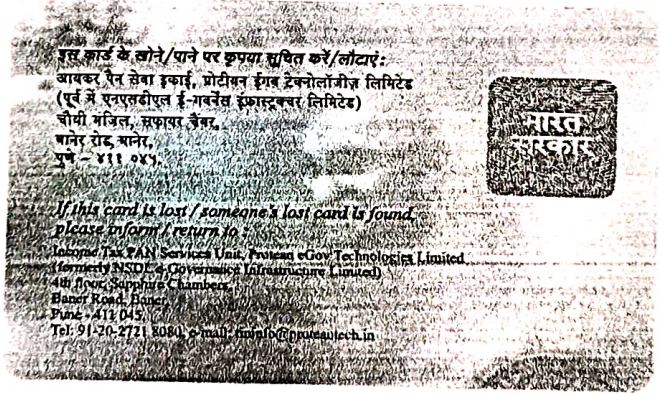 इस कार्ड के खोने/पाने पर कृपया सूचित करें/लौटाएं:
आयकर पैन सेवा इकाई, प्रोटीयन ईगव टेक्नोलॉजीज़ लिमिटेड
(पूर्व में एनएसडीएल ई-गवर्नेंस इंफ्रास्ट्रक्चर लिमिटेड)
चौथी मंज़िल, सफायर चैंबर,
बानेर रोड, बानेर,
पुणे – ४११ ०४५.
भारत
सरकार
If this card is lost / someone's lost card is found,
please inform / return to :
Income Tax PAN Services Unit, Protean eGov Technologies Limited
(formerly NSDL e-Governance Infrastructure Limited)
4th floor, Sapphire Chambers,
Baner Road, Baner,
Pune - 411 045.
Tel: 91-20-2721 8080, e-mail: tininfo@proteantech.in